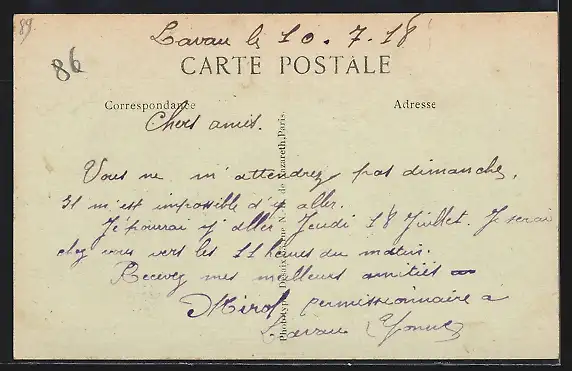 89
Lavau le 10.7.18
86
CARTE POSTALE
Correspondance
Adresse
Chers amis.
Vous ne m'attendrez pas dimanche,
Il m'est impossible d'y aller.
Je pourrai y aller Jeudi 18 Juillet. Je serai
chez vous vers les 11 heures du matin.
Recevez mes meilleurs amitiés
Mirol permissionnaire à
Lavau Yonne
Phototypie Desaix, rue N.-D. de Nazareth, Paris.